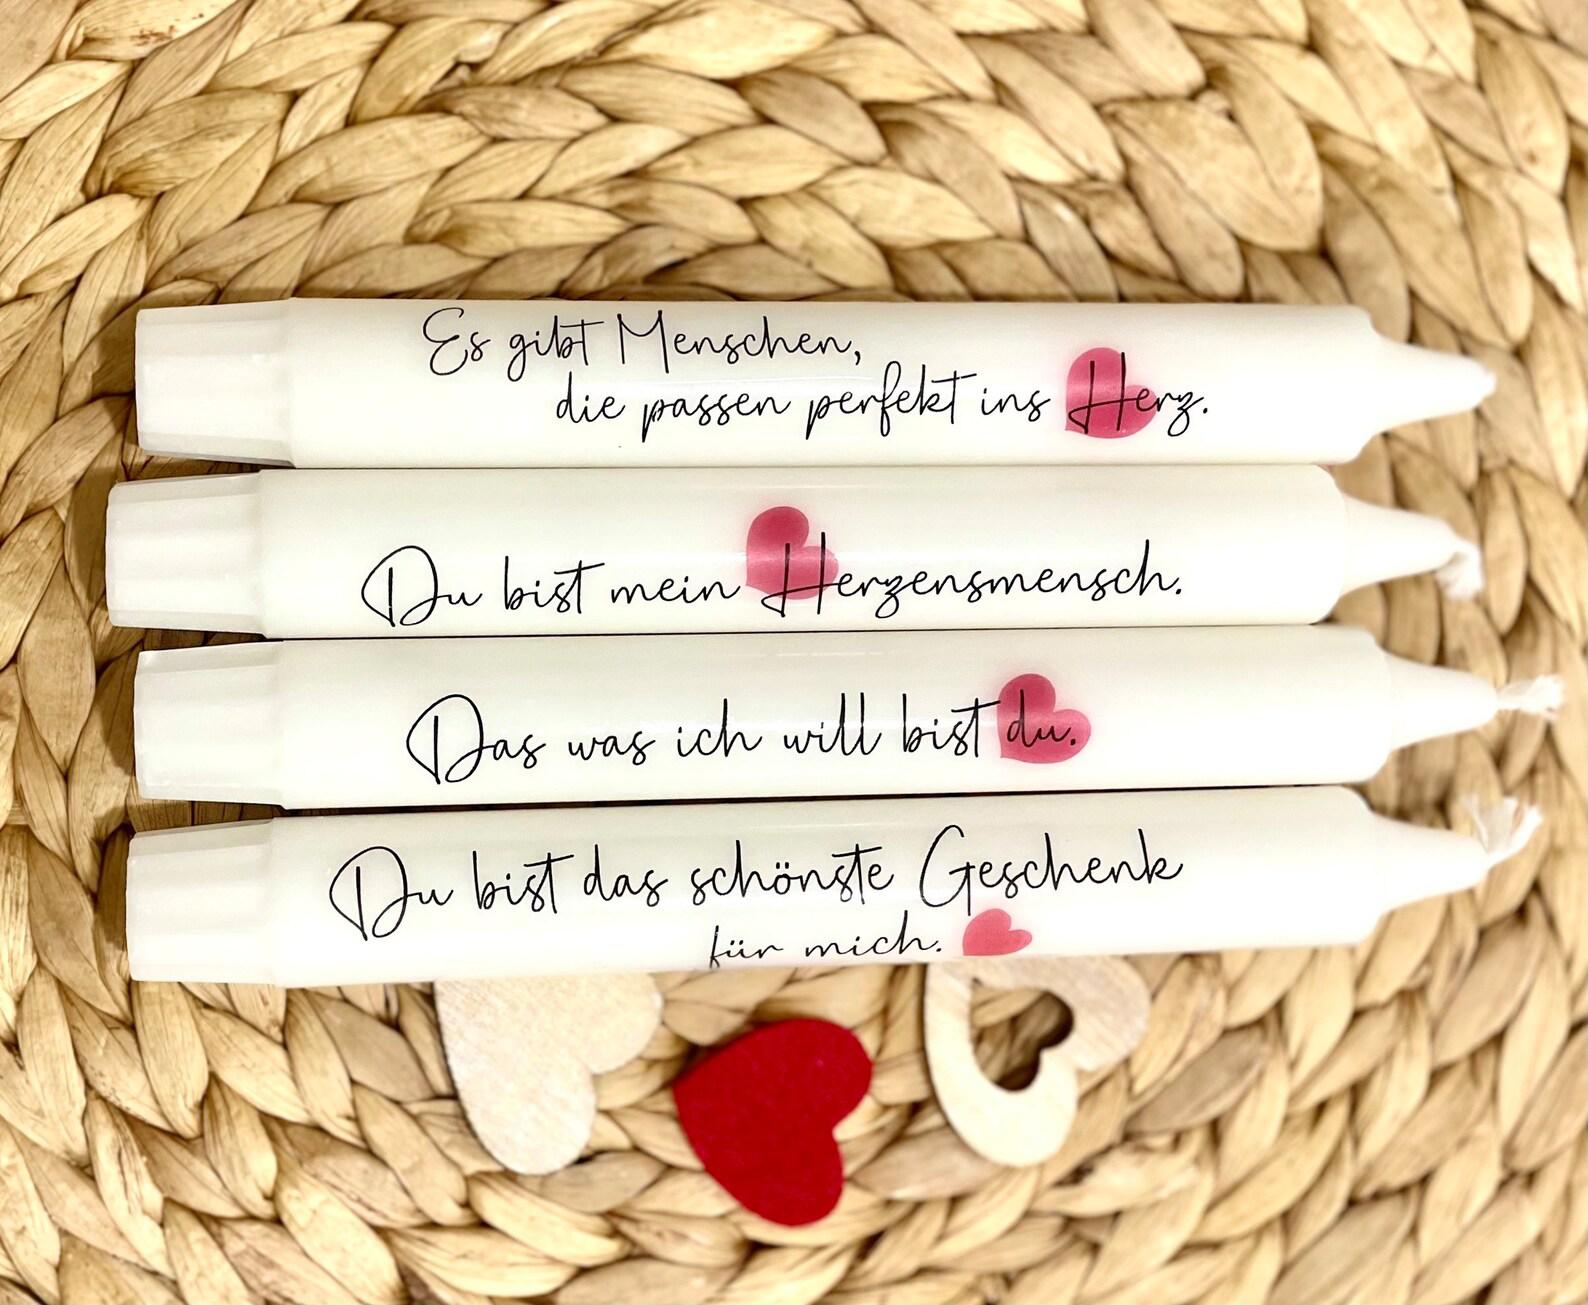 Es gibt Menschen,
die passen perfekt ins Herz.
Du bist mein Herzensmensch.
Das was ich will bist du.
Du bist das schönste Geschenk
für mich.